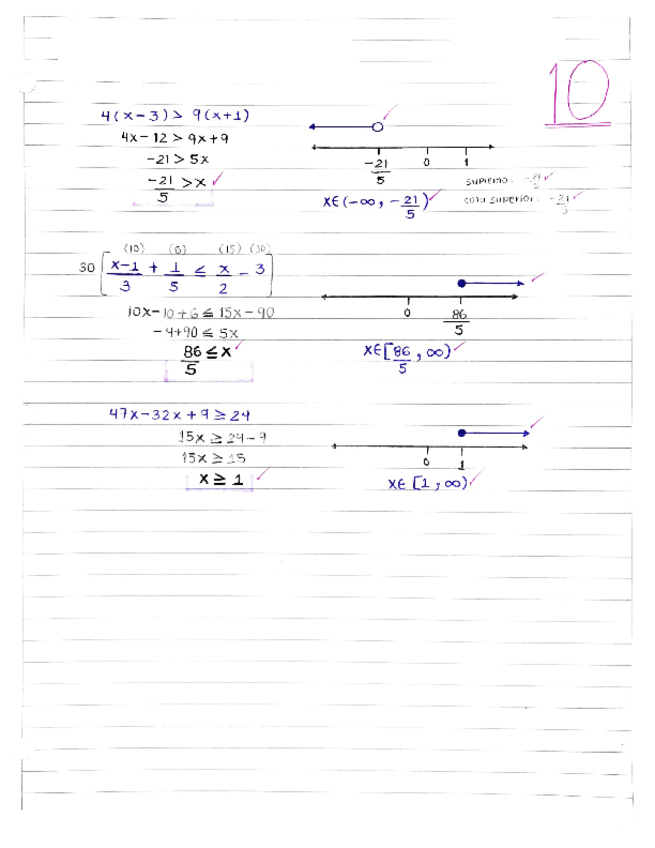 10
4(x-3) > 9(x+1)
4x-12 > 9x+9
-21 > 5x
-21/5 > x ✓
-21/5 0 1
x∈(-∞, -21/5) ✓
supremo: -21/5 ✓
cota superior: -21/5 ✓
(10) (6) (15) (30)
30 [ x-1/3 + 1/5 ≤ x/2 - 3 ]
10x-10+6 ≤ 15x-90
-4+90 ≤ 5x
86/5 ≤ x ✓
0 86/5
x∈[86/5, ∞) ✓
47x-32x+9 ≥ 24
15x ≥ 24-9
15x ≥ 15
x ≥ 1 ✓
0 1
x∈[1, ∞) ✓